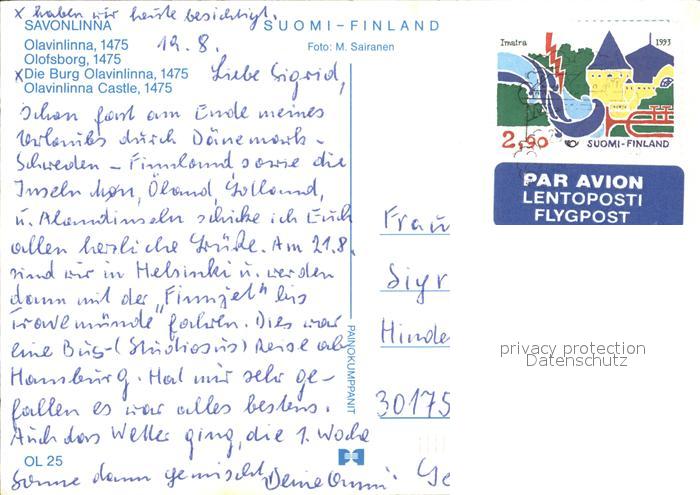 x haben wir heute besichtigt.
SAVONLINNA
SUOMI-FINLAND
Olavinlinna, 1475
19.8.
Foto: M. Sairanen
Olofsborg, 1475
xDie Burg Olavinlinna, 1475
Olavinlinna Castle, 1475
Liebe Sigrid,
schon fast am Ende meines
Urlaubs durch Dänemark-
Schweden - Finnland sowie die
Inseln Møn, Öland, Gotland,
u. Alandinseln schicke ich Euch
allen herzliche Grüße. Am 21.8.
sind wir in Helsinki u. werden
dann mit der "Finnjet" bis
Travemünde fahren. Dies war
eine Bus-(Studiosus) Reise ab
Hamburg. Hat mir sehr ge-
fallen es war alles bestens.
Auch das Wetter ging, die 1. Woche
Sonne dann gemischt. Deine
OL 25
PAINOKUMPPANIT
Imatra
1993
2,90
SUOMI-FINLAND
PAR AVION
LENTOPOSTI
FLYGPOST
Frau
Sigr
Hinde
30175
privacy protection
Datenschutz